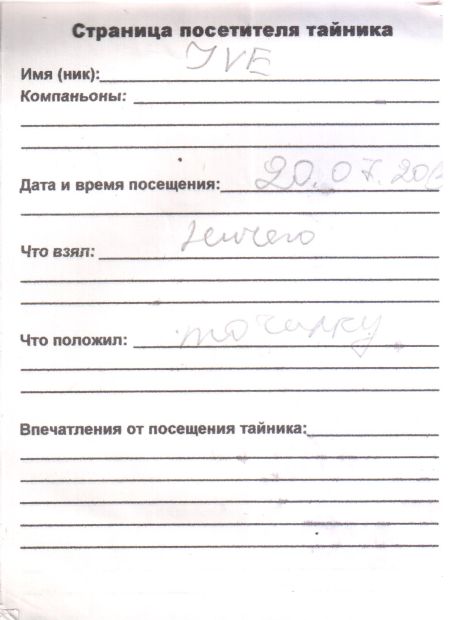 Страница посетителя тайника
Имя (ник): IVE
Компаньоны:
Дата и время посещения: 20.07.20
Что взял: ничего
Что положил: точилку
Впечатления от посещения тайника: